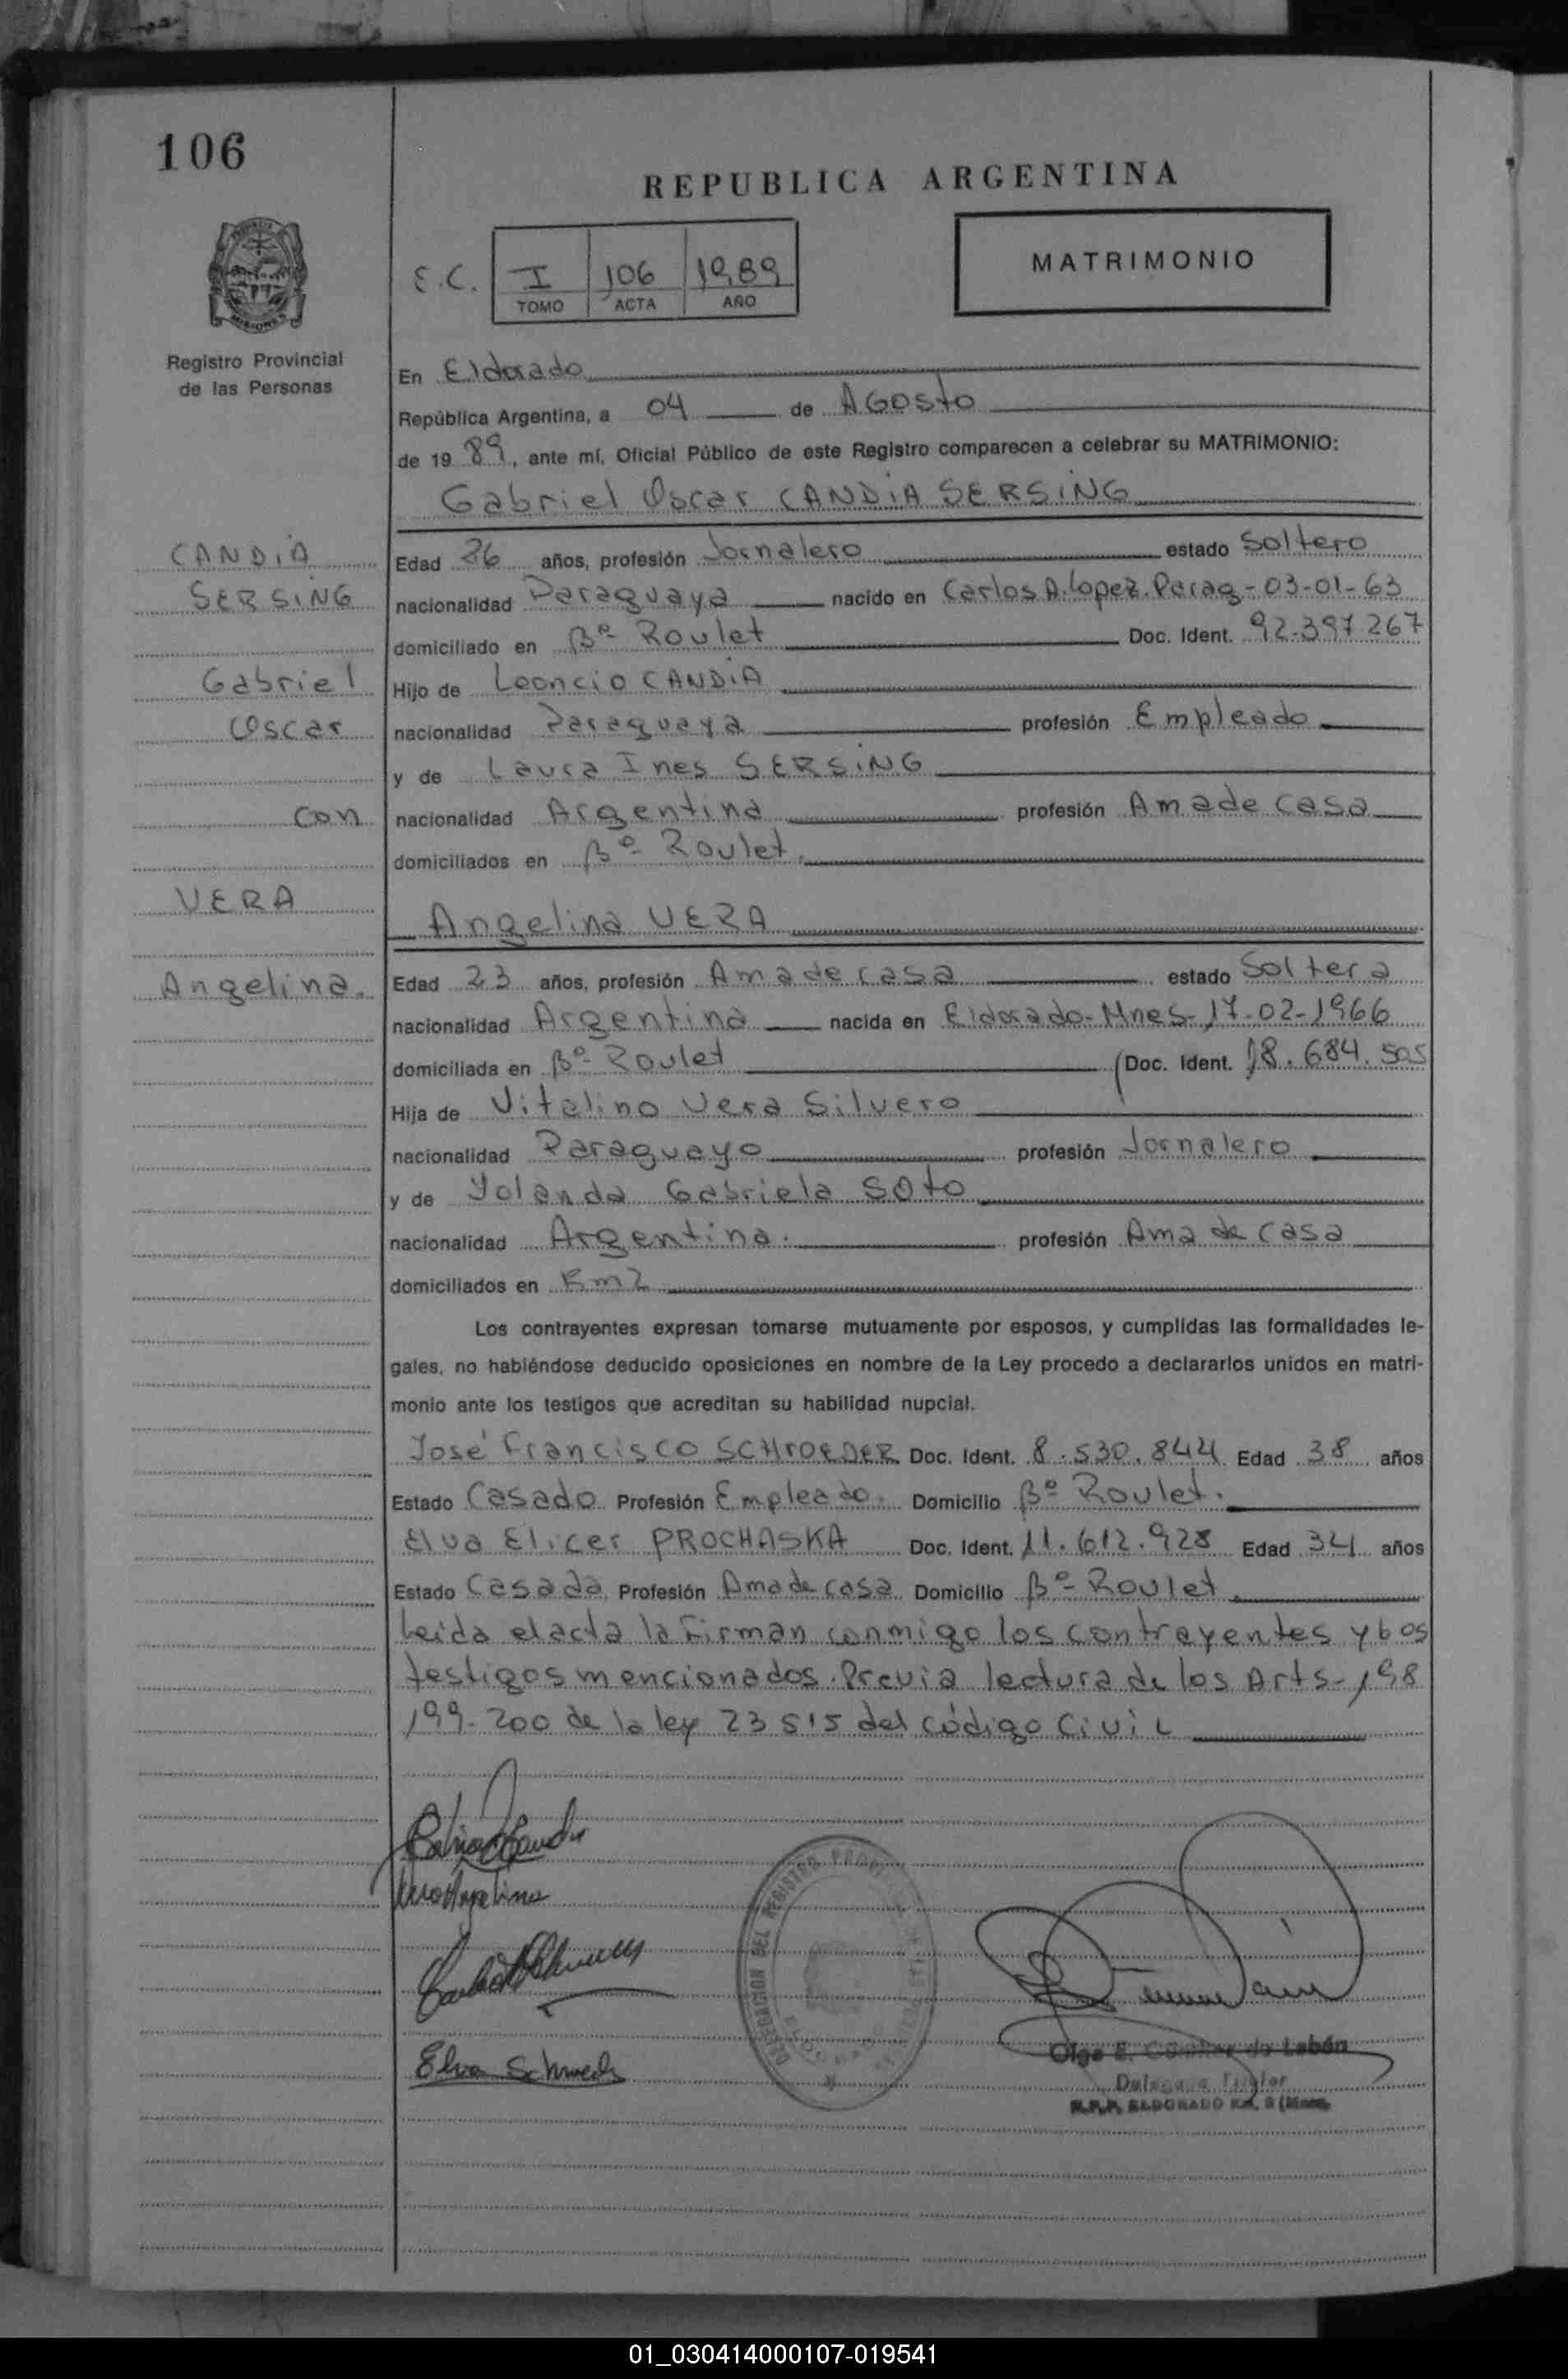 106
REPUBLICA ARGENTINA
MISIONES
Registro Provincial
de las Personas
E.C. I 106 1989
TOMO ACTA AÑO
MATRIMONIO
En Eldorado
República Argentina, a 04 de AGosto
de 19 89, ante mí, Oficial Público de este Registro comparecen a celebrar su MATRIMONIO:
Gabriel Oscar CANDIA SERSING
CANDIA
SERSING
Gabriel
Oscar
con
VERA
Angelina.
Edad 26 años, profesión Jornalero estado Soltero
nacionalidad Paraguaya nacido en Carlos A. Lopez. Parag - 03-01-63
domiciliado en Bº Roulet Doc. Ident. 92.397.267
Hijo de Leoncio CANDIA
nacionalidad Paraguaya profesión Empleado
y de Laura Ines SERSING
nacionalidad Argentina profesión Ama de casa
domiciliados en Bº Roulet.
Angelina VERA
Edad 23 años, profesión Ama de casa estado Soltera
nacionalidad Argentina nacida en Eldorado-Mnes-17-02-1966
domiciliada en Bº Roulet Doc. Ident. 18.684.505
Hija de Vitalino Vera Silvero
nacionalidad Paraguayo profesión Jornalero
y de Yolanda Gabriela SOto
nacionalidad Argentina. profesión Ama de casa
domiciliados en Km2
Los contrayentes expresan tomarse mutuamente por esposos, y cumplidas las formalidades le-
gales, no habiéndose deducido oposiciones en nombre de la Ley procedo a declararlos unidos en matri-
monio ante los testigos que acreditan su habilidad nupcial.
José Francisco SCHROEDER Doc. Ident. 8.530.844 Edad 38 años
Estado Casado Profesión Empleado. Domicilio Bº Roulet.
Elva Elicer PROCHASKA Doc. Ident. 11.612.928 Edad 34 años
Estado Casada Profesión Ama de casa Domicilio Bº Roulet.
Leida el acta la Firman conmigo los contrayentes y los
testigos mencionados. Previa lectura de los Arts-198
199-200 de la ley 23515 del código Civil
Vera Angelina
DELEGACION DEL REGISTRO
Elva
Olga E. de Labán
Delegada Titular
R.P.P. ELDORADO
01_030414000107-019541